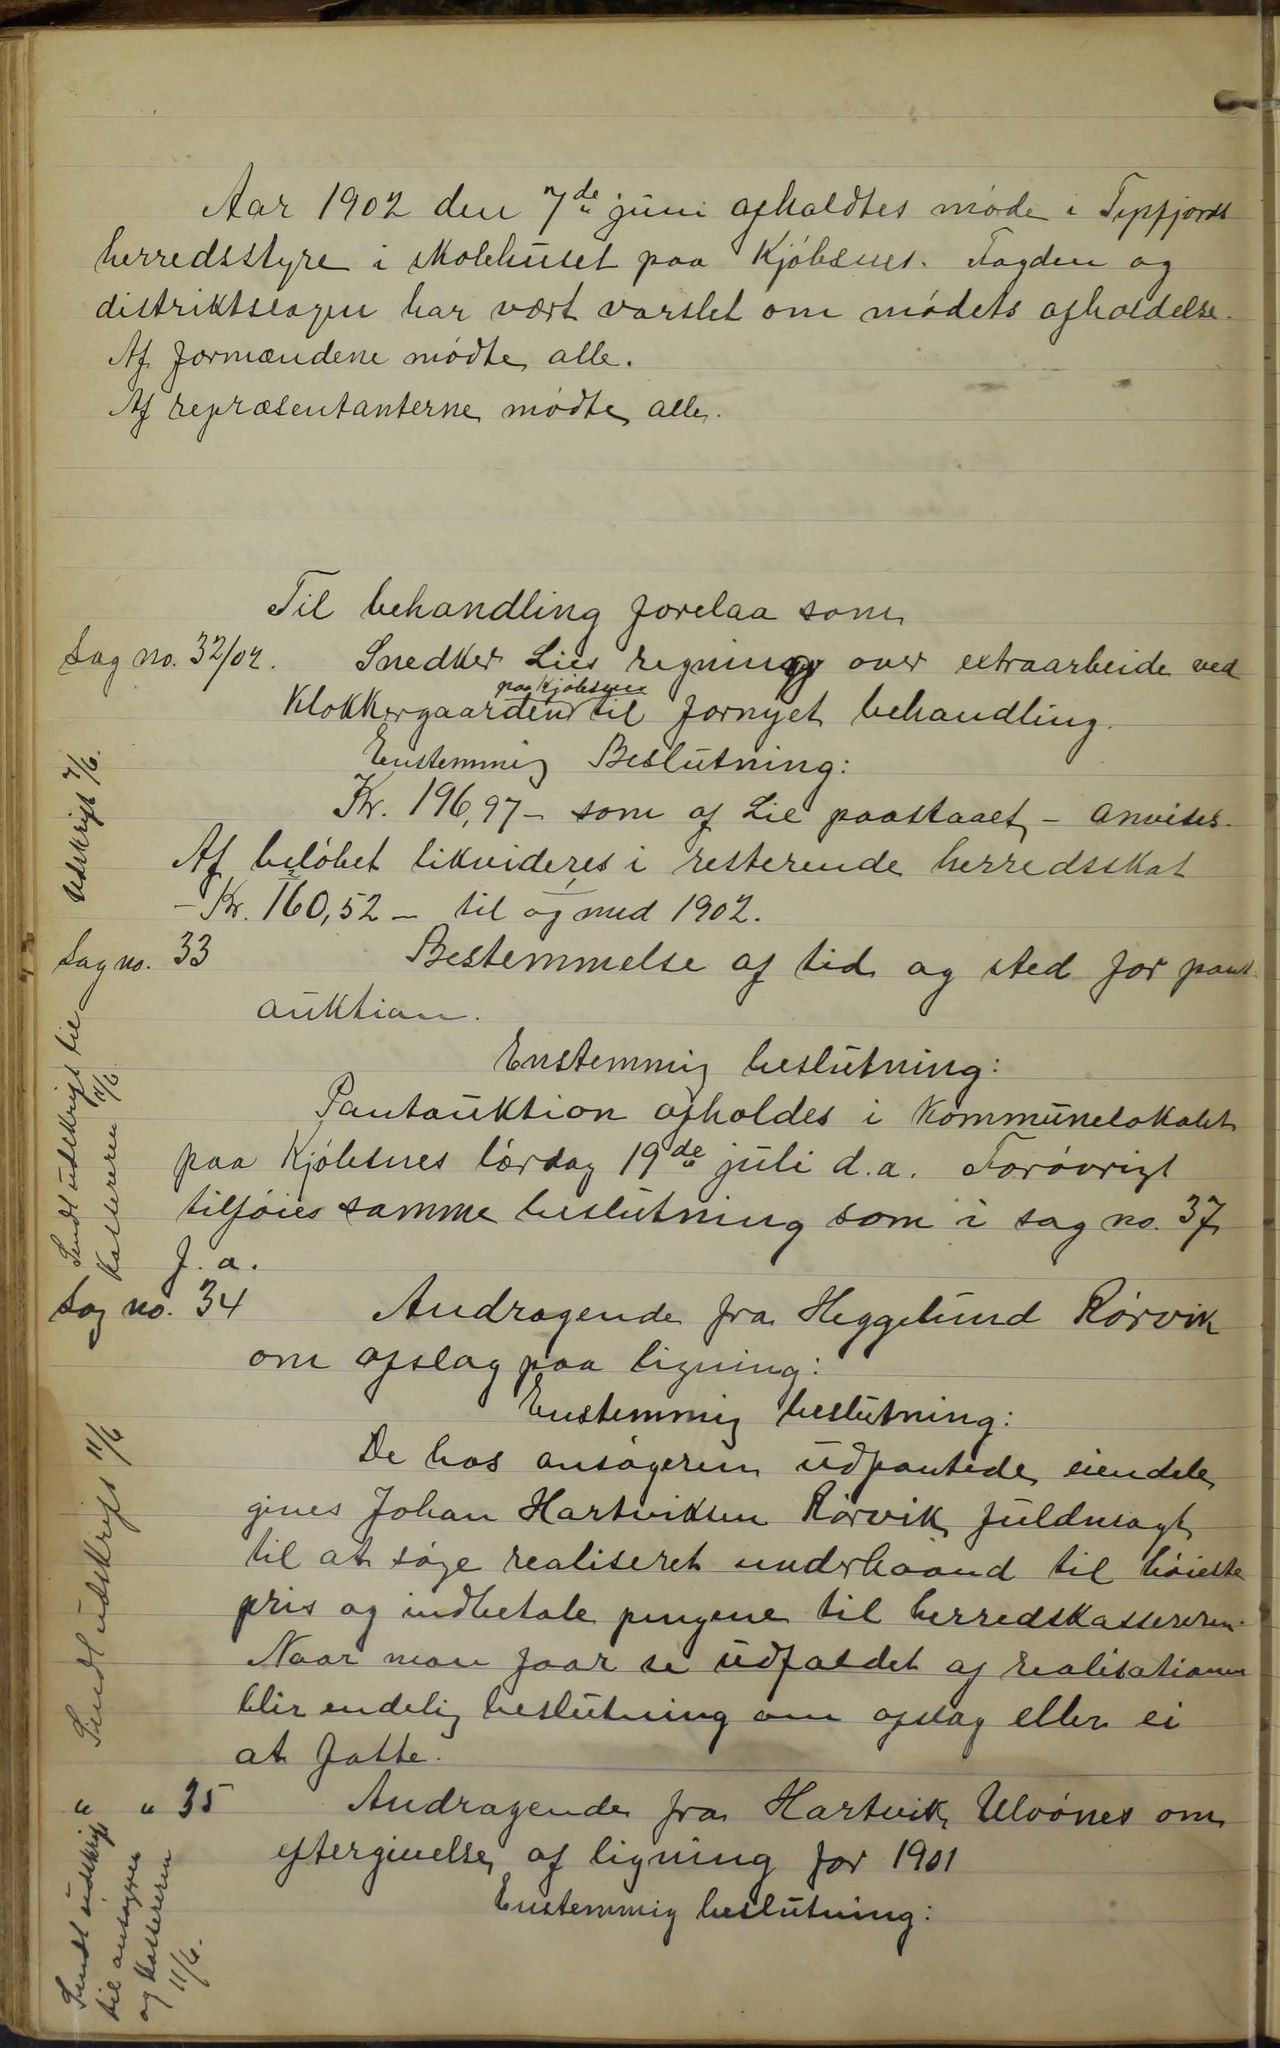 Aar 1902 den 7de juni afholdtes møde i Tysfjords
herredsstyre i skolehuset paa Kjøbsnes. Fogden og
distriktslægen har vært varslet om mødets afholdelse.
Af formændene mødte alle.
Af repræsentanterne mødte alle.
Til behandling forelaa som
Sag no. 32/02. Snedker Lies regning over extraarbeide ved
paa Kjøbsnes
Klokkergaarden til fornyet behandling.
Enstemmig Beslutning:
Kr. 196,97 – som af Lie paastaaet – anvises.
Af beløbet likvideres i resterende herredsskat
– Kr. 160,52 – til og med 1902.
Udskrift 7/6.
Sag no. 33 Bestemmelse af tid og sted for pant-
auktion.
Enstemmig beslutning:
Pantauktion afholdes i kommunelokalet
paa Kjøbsnes lørdag 19de juli d.a. Forøvrigt
tilføies samme beslutning som i sag no. 37
f. a.
Sendt udskrift til
kassereren 11/6
Sag no. 34 Andragende fra Heggelund Rørvik
om afslag paa ligning:
Enstemmig beslutning:
De hos ansøgeren udpantede eiendele
gives Johan Hartviksen Rørvik fuldmagt
til at søge realiseret underhaand til høieste
pris og indbetale pengene til herredskassereren.
Naar man faar se udfaldet af realisationen
blir endelig beslutning om afslag eller ei
at fatte.
Sendt udskrift 11/6
" " 35 Andragende fra Hartvik Ulvønes om
eftergivelse af ligning for 1901
Enstemmig beslutning:
Sendt udskrift
til ansøgeren
og kassereren
11/6.